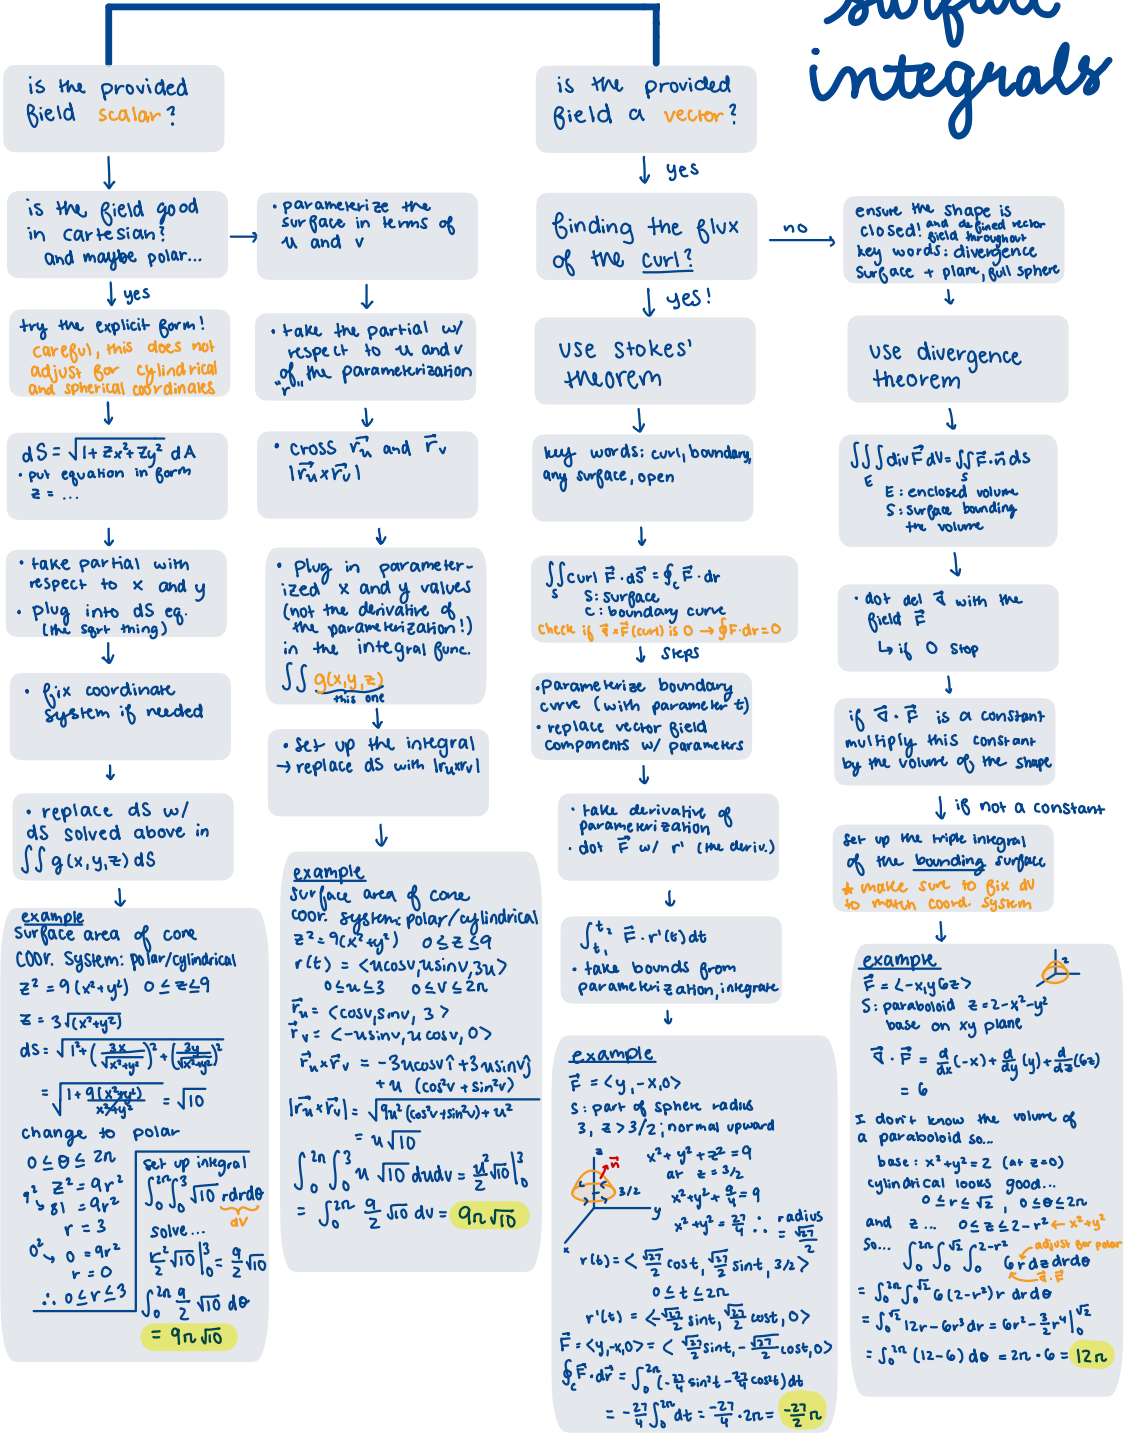 surface
integrals
is the provided
field scalar?
is the field good
in cartesian?
and maybe polar...
yes
try the explicit form!
careful, this does not
adjust for cylindrical
and spherical coordinates
dS = √(1+Zx²+Zy²) dA
• put equation in form
z = ...
• take partial with
respect to x and y
• plug into dS eq.
(the sqrt thing)
• fix coordinate
system if needed
• replace dS w/
dS solved above in
∫∫ g(x,y,z) dS
example
surface area of cone
coor. system: polar/cylindrical
z² = 9(x²+y²) 0≤z≤9
z = 3√(x²+y²)
dS = √(1² + (3x/√(x²+y²))² + (3y/√(x²+y²))²)
= √(1 + 9(x²+y²)/(x²+y²)) = √10
change to polar
0 ≤ θ ≤ 2π
z² = 9r²
9² ↘ 81 = 9r²
r = 3
0² ↘ 0 = 9r²
r = 0
∴ 0 ≤ r ≤ 3
set up integral
∫₀^2π ∫₀^3 √10 r dr dθ
dV
solve...
r²/2 √10 |₀^3 = 9/2 √10
∫₀^2π 9/2 √10 dθ
= 9π√10
• parameterize the
surface in terms of
u and v
• take the partial w/
respect to u and v
of the parameterization
"r"
• cross r⃗u and r⃗v
|r⃗u × r⃗v|
• plug in parameter-
ized x and y values
(not the derivative of
the parameterization!)
in the integral func.
∫∫ g(x,y,z)
this one
• set up the integral
→ replace dS with |ru×rv|
example
surface area of cone
coor. system: polar/cylindrical
z² = 9(x²+y²) 0≤z≤9
r(t) = <ucosv, usinv, 3u>
0≤u≤3 0≤v≤2π
r⃗u = <cosv, sinv, 3>
r⃗v = <-usinv, ucosv, 0>
r⃗u × r⃗v = -3ucosv î + 3usinv ĵ
+ u (cos²v + sin²v)
|r⃗u × r⃗v| = √(9u²(cos²v+sin²v) + u²
= u√10
∫₀^2π ∫₀^3 u √10 du dv = u²/2 √10 |₀^3
= ∫₀^2π 9/2 √10 dv = 9π√10
is the provided
field a vector?
yes
finding the flux
of the curl?
no
yes!
use stokes'
theorem
key words: curl, boundary,
any surface, open
∫∫S curl F⃗ · dS⃗ = ∮c F⃗ · dr
S: surface
C: boundary curve
check if ∇⃗×F⃗ (curl) is 0 → ∮F·dr = 0
steps
• Parameterize boundary
curve (with parameter t)
• replace vector field
components w/ parameters
• take derivative of
parameterization
• dot F⃗ w/ r' (the deriv.)
∫t₁^t₂ F⃗ · r'(t) dt
• take bounds from
parameterization, integrate
example
F⃗ = <y, -x, 0>
S: part of sphere radius
3, z > 3/2; normal upward
z
n⃗
3/2
y
x
x² + y² + z² = 9
at z = 3/2
x² + y² + 9/4 = 9
x² + y² = 27/4 ∴ radius
= √27/2
r(t) = <√27/2 cost, √27/2 sint, 3/2>
0 ≤ t ≤ 2π
r'(t) = <-√27/2 sint, √27/2 cost, 0>
F⃗ = <y, -x, 0> = <√27/2 sint, -√27/2 cost, 0>
∮c F⃗ · dr⃗ = ∫₀^2π (-27/4 sin²t - 27/4 cos²t) dt
= -27/4 ∫₀^2π dt = -27/4 · 2π = -27/2 π
ensure the shape is
closed! and defined vector
field throughout
key words: divergence
surface + plane, full sphere
use divergence
theorem
∫∫∫E div F⃗ dV = ∫∫S F⃗ · n⃗ ds
E: enclosed volume
S: surface bounding
the volume
• dot del ∇⃗ with the
field F⃗
↳ if 0 stop
if ∇⃗ · F⃗ is a constant
multiply this constant
by the volume of the shape
if not a constant
set up the triple integral
of the bounding surface
* make sure to fix dV
to match coord system
example
2
F⃗ = <-x, y 6z>
S: paraboloid z = 2-x²-y²
base on xy plane
∇⃗ · F⃗ = d/dx (-x) + d/dy (y) + d/dz (6z)
= 6
I don't know the volume of
a paraboloid so...
base: x²+y² = 2 (at z=0)
cylindrical looks good...
0 ≤ r ≤ √2, 0 ≤ θ ≤ 2π
and z... 0 ≤ z ≤ 2-r² ← x²+y²
So... ∫₀^2π ∫₀^√2 ∫₀^2-r² 6 r dz dr dθ
adjust for polar
∇⃗ · F⃗
= ∫₀^2π ∫₀^√2 6(2-r²) r dr dθ
= ∫₀^√2 12r - 6r³ dr = 6r² - 3/2 r⁴ |₀^√2
= ∫₀^2π (12-6) dθ = 2π · 6 = 12π